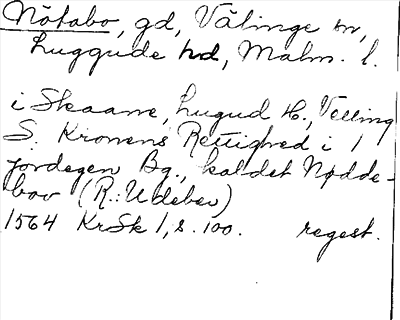 Nötabo, gd, Välinge sn,
Luggude hd, Malm. l.
i Skaane, Lugud H., Velling
S. Kronens Rettighed i 1
jordegen Bg., kaldet Nødde-
bov (R.: Udebev)
1564 KrSk 1, s. 100. regest.